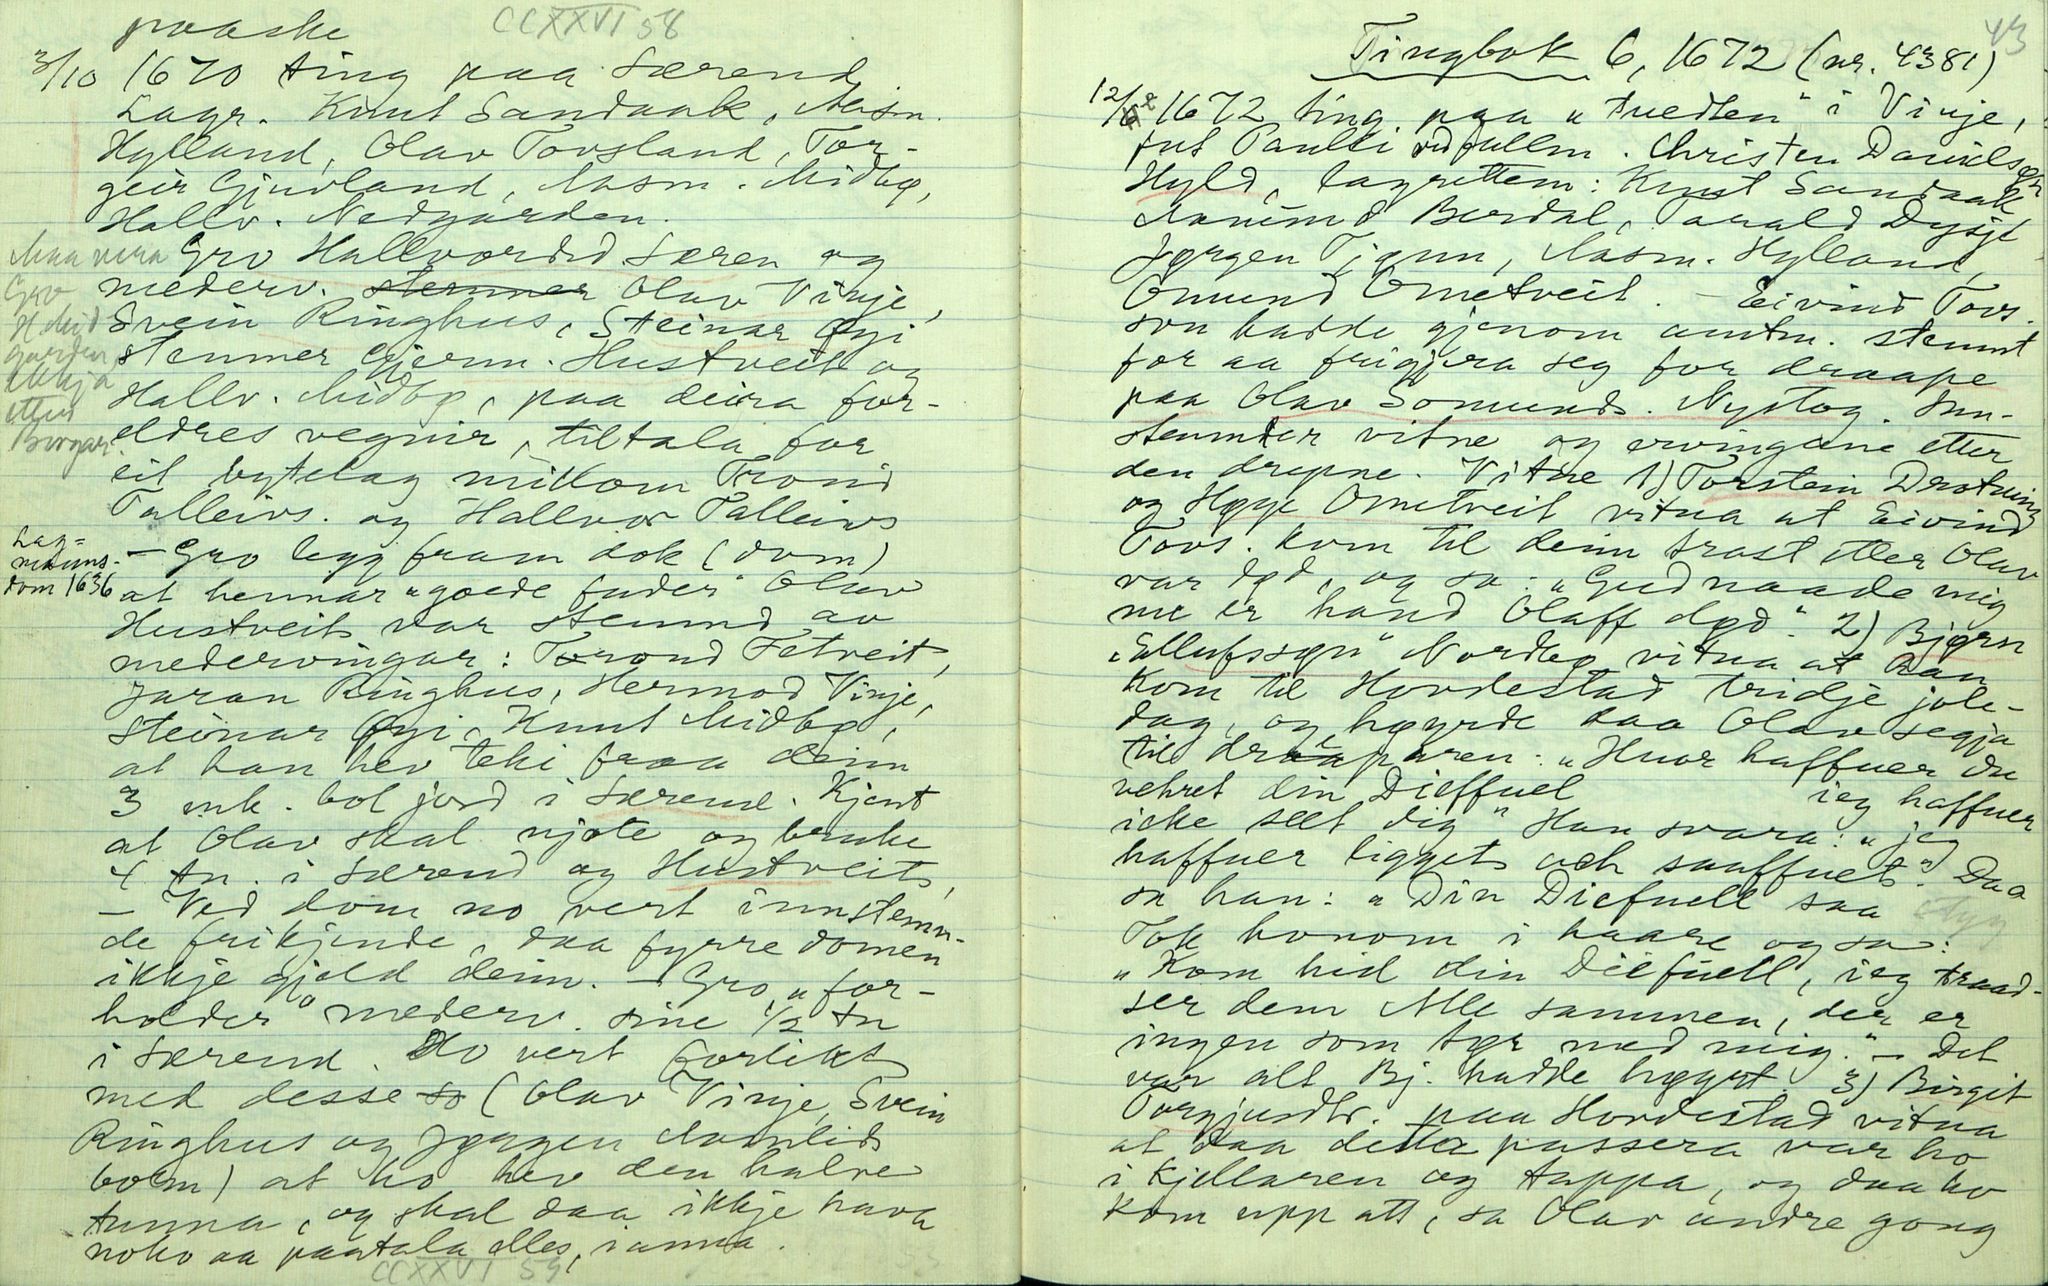 CCXXVI 58
paaske
3/10 1670 ting paa Særend
Lagr. Knut Sandaak, Aasm.
Hylland, Olav Tovsland, Tor-
geir Gjuvland, Aasm. Midbø,
Hallv. Nedgarden.
Gro Hallvordsd Særen og
mederv. stemner Olav Vinje,
Svein Ringhus, Steinar Øyi
stemner Gjerm. Hustveit og
Hallv. Midbø, paa deira for-
eldres vegnir, tiltala for
eit bytelag millom Trond
Talleivs. og Hallvor Talleivs
Maa vera
Gro
H Mid
garden
ikkja
etter
Lag-
manns-
dom 1636
- Gro legg fram dok (dom)
at hennar "goede fader" Olav
Hustveit var stemnd av
medervingar: Torond Fetveit,
Jaran Ringhus, Hermod Vinje,
Steinar Øyi, Knut Midbø,
at han hev teki fraa deim
3 mk. bol jord i Særend. Kjent
at Olav skal njote og bruke
4 tn. i Særend og Hustveit,
- Ved dom no vert innstemn-
de frikjende, daa fyrre domen
ikkje gjeld deim. - Gro "for-
holder" mederv. sine 1/2 tn
i Særend. Ho vert forlikt
med desse so (Olav Vinje, Svein
Ringhus og Jørgen Aamlids
bolm) at ho hev den halve
tunna, og skal daa ikkje hava
noko aa paatala elles, i anna.
CCXXVI 59
43
Tingbok 6, 1672 (nr. 4381)
12/ 1672 ting paa "tuedten" i Vinje,
fut Paulli ved fullm. Christen Danielsøn
Hyld, lagrettem: Knut Sandaak
Aanund Bordal, Tarald Dysjt
Jørgen Tjønn, Aasm. Hylland,
Omund Ometveit. - Eivind Tovs.
son hadde gjenom amtm. stemnt
for aa frigjera seg for draape
paa Olav Somunds. Nystog. Inn-
stemner vitne og ervingane etter
den drepne. Vitne 1) Torstein Drotning
og Høye Ometveit vitna at Eivind
Tovs. kom til deim trast etter Olav
var død, og sa: "Gud naade mig
nu er hand Olaff død". 2) Bjørn
"Ellufssøn" Nordbø vitna at han
kom til Hovdestad tridje jole-
dag, og høyrde daa Olav segja
til draaparen: "Huor haffuer du
vehret din Dieffuel ieg haffuer
icke seet dig" Han svara: "jeg
haffuer ligget och saaffuet". Daa
sa han: "Din Diefuell saa styg
Tok honom i haare og sa:
"Kom hid din Diefuell, ieg traad-
ser dem Alle sammen, der er
ingen som tør med mig." - Det
var alt Bj. hadde høyrt. 3) Birgit
Torgjusdtr. paa Hovdestad vitna
at daa dette passera var ho
i kjellaren og tappa, og daa ho
kom upp att, sa Olav andre gong